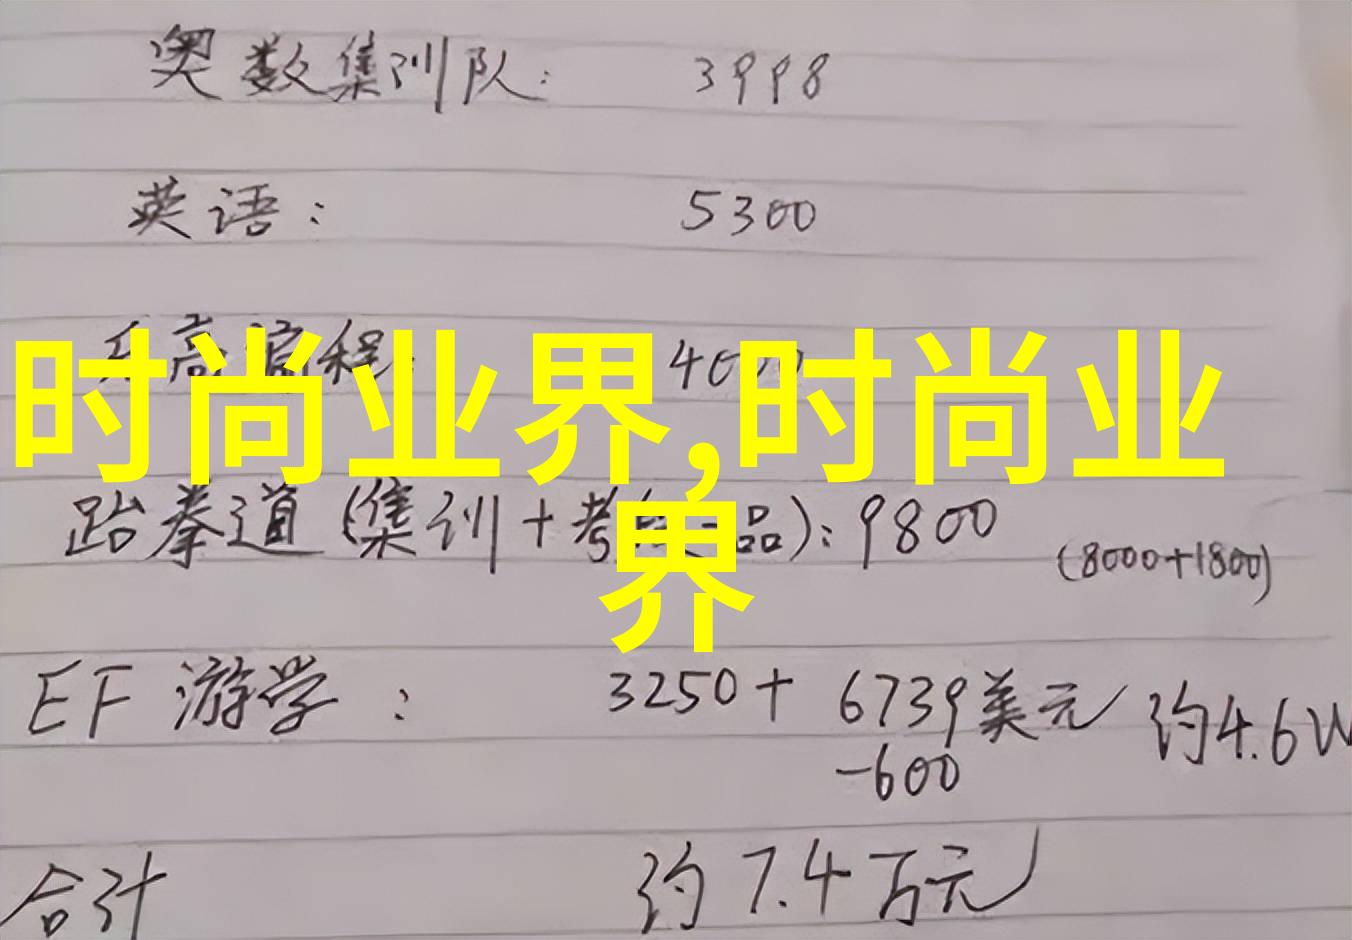 奥数集训队: 3998
英语: 5300
乐高编程: 4000
时尚业界,时尚业
界
跆拳道(集训+考 品):9800 (8000+1800)
EF 游学: 3250+6739美元 约4.6W
-600
合计 约7.4万元